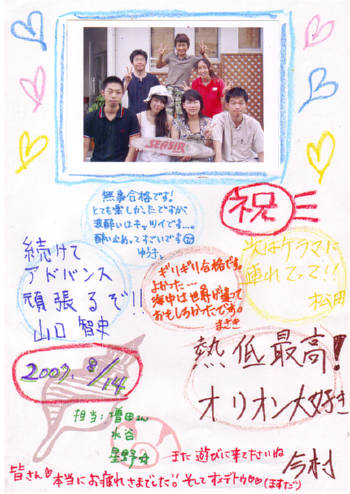 SEASIR
祝
無事合格です!
とても楽しかったですが
波酔いはキツイです…。
酔い止めってすごいです
ゆうき。
続けて
アドバンス
頑張るぞ!!
山口 智史
ギリギリ合格です。
よかった…。
海中は世界が違って
おもしろかったです。
まさき
次はケラマに
連れてって!!
松田
熱低最高!
オリオン大好き
今村
2007. 8/14.
担当:増田
水谷
星野
また 遊びに来てくださいね
皆さん 本当にお疲れさまでした!! そして オメデトウ (ますだ)